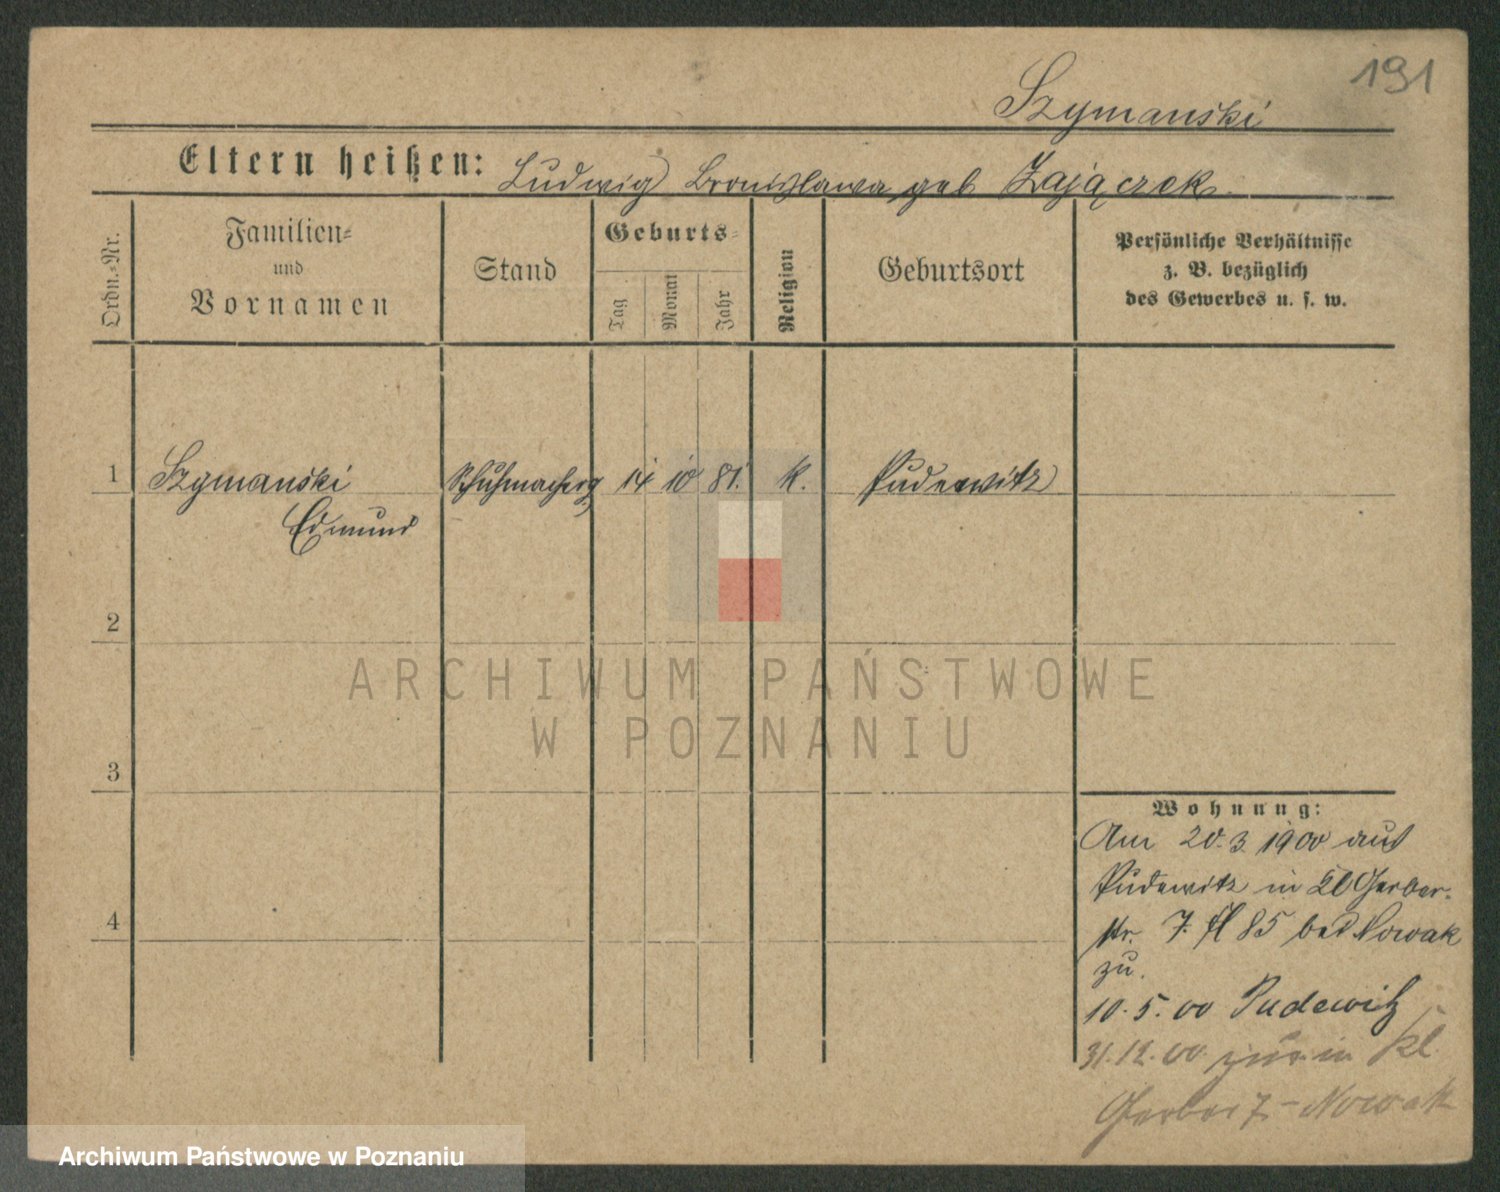 191
Szymanski
Eltern heißen: Ludwig Bronislawa geb Zajączek
Ordn.-Nr.
Familien-
und
Vornamen
Stand
Geburts-
Tag
Monat
Jahr
Religion
Geburtsort
Persönliche Verhältnisse
z. B. bezüglich
des Gewerbes u. s. w.
1 Szymanski Schuhmacherg 14 10 81. k. Pudewitz
Edmund
2
ARCHIWUM PAŃSTWOWE
W POZNANIU
3
Wohnung:
Am 20.3.1900 aus
Pudewitz in Kl Gerber-
str. 7. 85 bei Nowak
zu.
4
10.5.00 Pudewitz
31.12.00 zur. in Kl.
Gerber 7 - Nowak
Archiwum Państwowe w Poznaniu